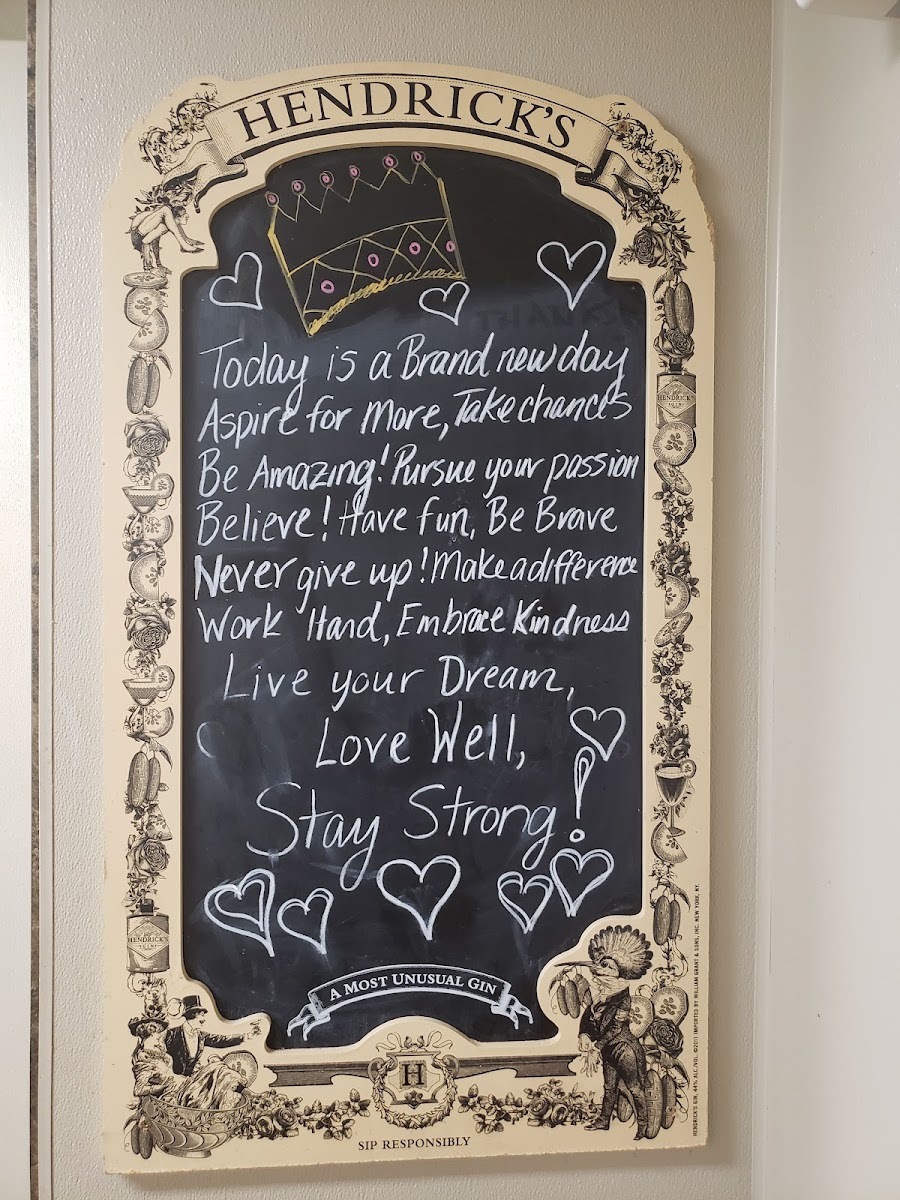 HENDRICK'S
Today is a Brand new day
Aspire for More, Take chances
Be Amazing! Pursue your passion
Believe! Have fun, Be Brave
Never give up! Make a difference
Work Hard, Embrace Kindness
Live your Dream,
Love Well,
Stay Strong!
A MOST UNUSUAL GIN
H
SIP RESPONSIBLY
HENDRICK'S
GIN
HENDRICK'S
GIN
HENDRICK'S GIN, 44% ALC./VOL. ©2011 IMPORTED BY WILLIAM GRANT & SONS, INC. NEW YORK, NY.